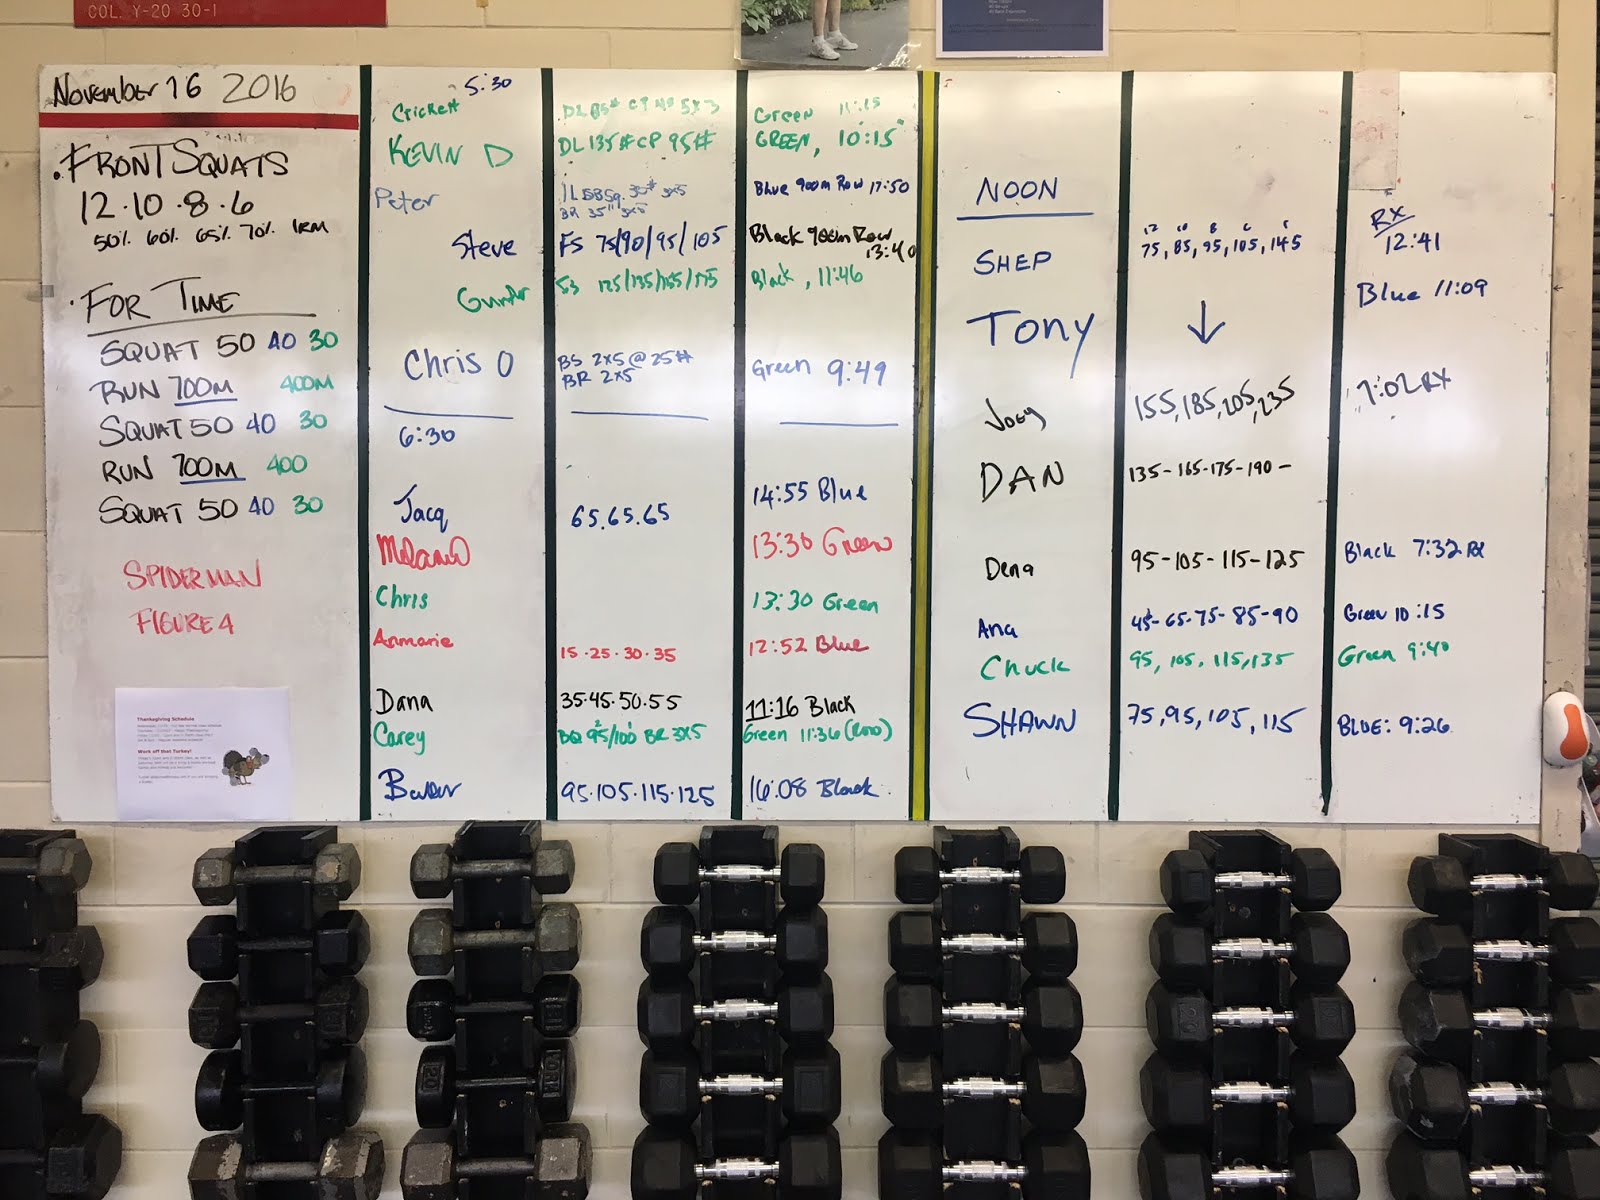 COL. Y-20 30-1
November 16 2016
.FRONT SQUATS
12·10·8·6
50% 60% 65% 70% 1RM
·FOR TIME
SQUAT 50 40 30
RUN 700M 400M
SQUAT 50 40 30
RUN 700M 400
SQUAT 50 40 30
SPIDERMAN
FIGURE 4
Thanksgiving Schedule
Work off that Turkey!
5:30
Crickett DL 85# CP 40 5x3 Green 11:15
KEVIN D DL 135# CP 95# GREEN, 10:15
Peter 35# 3x5 Blue 900m Row 17:50
BR 35" 3x5
Steve FS 75/90/95/105 Black 900m Row
13:40
Black, 11:46
Chris O BS 2x5 @ 25# Green 9:49
BR 2x5
6:30
Jacq 65.65.65 14:55 Blue
13:30 Green
Chris 13:30 Green
Annmarie 15·25·30·35 12:52 Blue
Dana 35·45·50·55 11:16 Black
Carey 95/100 BR 3x5 Green 11:36
95·105·115·125 16:08 Black
NOON
12 10 8 6
SHEP 75, 85, 95, 105, 145 RX
12:41
TONY ↓ Blue 11:09
Joey 155, 185, 205, 235 7:02 RX
DAN 135-165-175-190-
Dena 95-105-115-125 Black 7:32 RX
Ana 45-65-75-85-90 Green 10:15
Chuck 95, 105, 115, 135 Green 9:40
SHAWN 75, 95, 105, 115 BLUE: 9:26